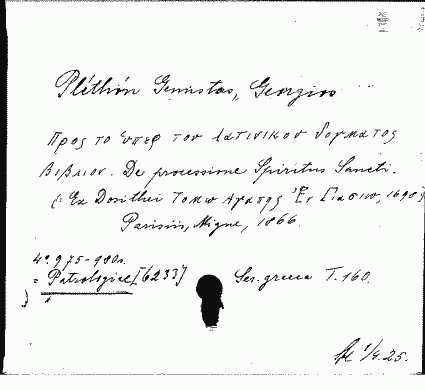 Pléthón Gemistos, Georgios
Προς το υπερ του λατινικου δογματος
βιβλιον. De processione Spiritus Sancti.
(: Ex Dosithei Τομω Αγαπης Ἐν Γιασιῳ, 1698:)
Parisiis, Migne, 1866.
4º. 975-980 r.
= Patrologiae [6233] Ser. graeca T. 160.
1/4. 25.